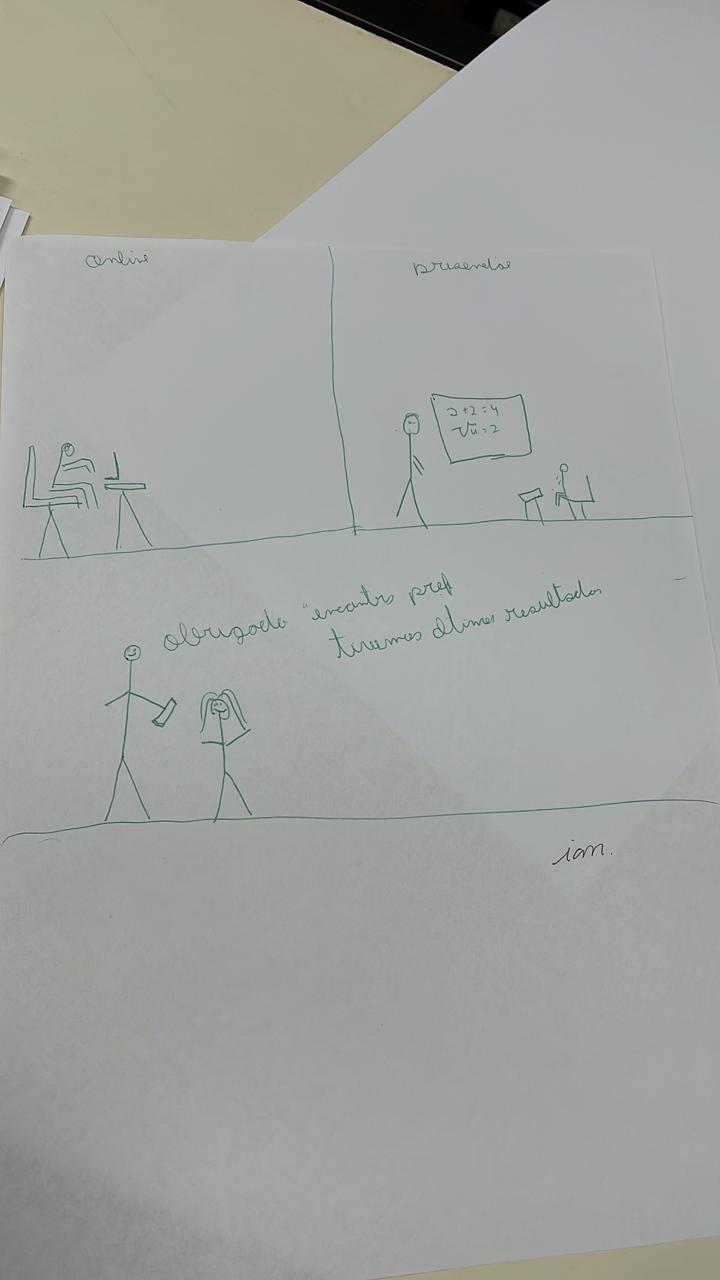 online
presencial
2+2=4
√4=2
obrigado "encontro prof
tiremos ótimos resultados
ian.